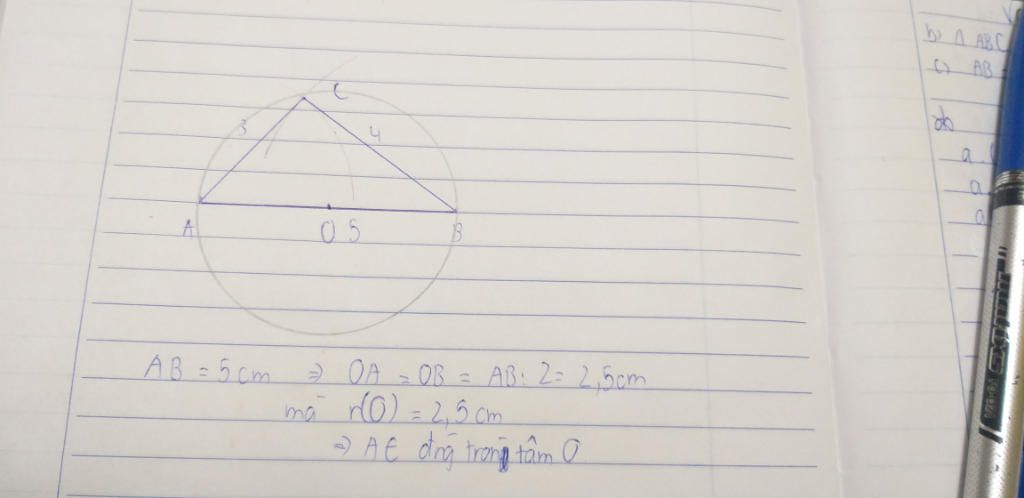 C
3
4
A
O 5
B
AB = 5 cm ⇒ OA = OB = AB : 2 = 2,5cm
mà r(O) = 2,5 cm
⇒ A ∈ đng tròn tâm O
b) Δ ABC
c) AB
a
a
a